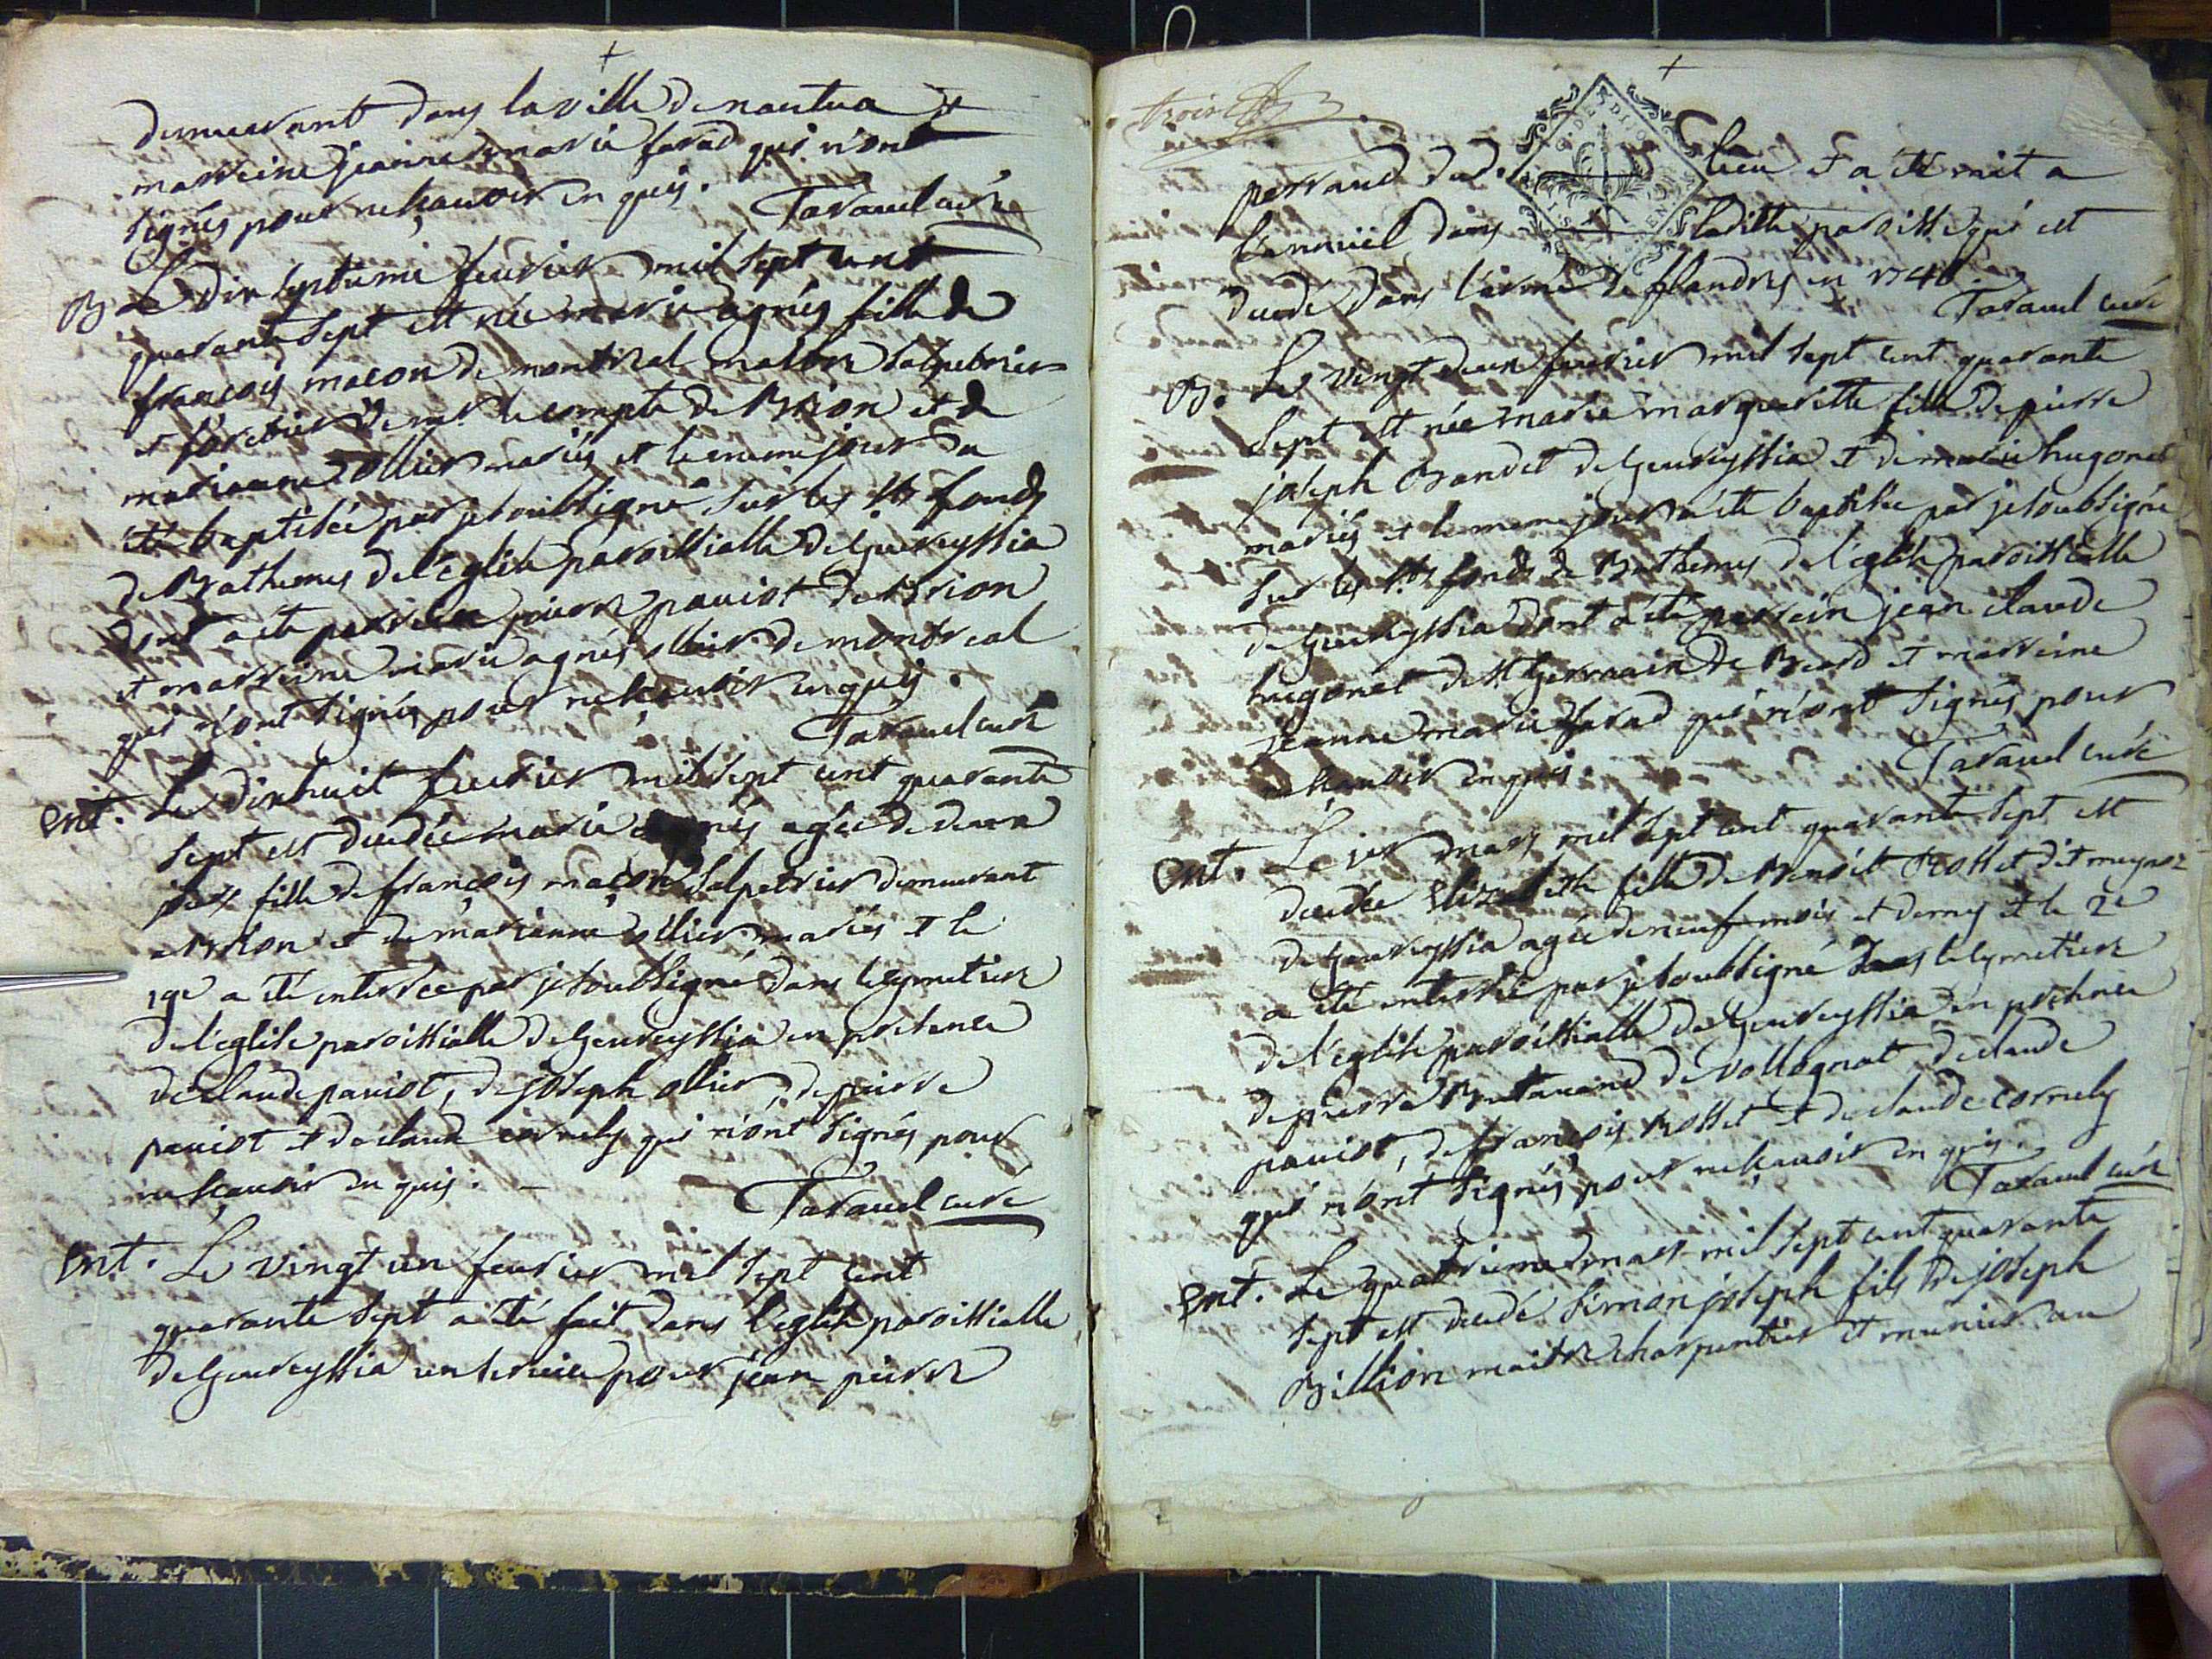 demeurant dans la ville de nantua et
marreine jeanne marie farad qui n'ont
signés pour ne sçavoir en quis. Taravel curé
B Le dix septieme feuvrier mil sept cent
quarante sept est née marie agnés fille de
françois maçon de montreal maitre salpetrier
et de mr. le compte de Brion et de
marianne ollier mariés et le meme jour a
été baptisée par je soubsigné sur les sts fonds
de Bathemes de l'eglise paroissialle de Geureyssia
dont a été parrein pierre paviot de Brion
et marreine marie agnés ollier de montreal
qui n'ont signés pour ne sçavoir en quis.
Taravel curé
ent. Le dix huit feuvrier mil sept cent quarante
sept est decedée marie agnés agée de deux
jours fille de françois maçon salpetrier demeurant
a Brion et de marianne ollier mariés et le
19e a été enterrée par je soubsigné dans le cymetiere
de l'eglise paroissialle de Geureyssia en presence
de claude paviot, de joseph ollier, de pierre
paviot et de claude cornely qui n'ont signés pour
ne sçavoir en quis. Taravel curé
ent. Le vingt un feuvrier mil sept cent
quarante sept a été fait dans l'eglise paroissialle
de Geureyssia un service pour jean pierre
trois
perraud dud. lieu et a été mit a
l'ennuiel dans laditte paroisse qui est
decedé dans l'armé de flandres en 1746.
Taravel curé
B. Le vingt deux feuvrier mil sept cent quarante
sept est née marie margueritte fille de pierre
joseph Bandet de Geureyssia et de marie hugonet
mariés et le meme jour a été baptisée par je soubsigné
sur les sts fonds de Bathemes de l'eglise paroissialle
de Geureyssia dont a été parrein jean claude
hugonet de st Germain de Beard et marreine
jeanne marie farad qui n'ont signés pour
ne sçavoir en quis. Taravel curé
ent. Le 1er mars mil sept cent quarante sept est
decedée Elizabeth fille de Benoit Rosset dit
de Geureyssia agée de neuf mois et demy et le 2e
a été enterrée par je soubsigné dans le cymetiere
de l'eglise paroissialle de Geureyssia en presence
de pierre de vollognat de claude
paviot, de françois Rosset et de claude cornely
qui n'ont signés pour ne sçavoir en quis.
Taravel curé
ent. Le quatrieme mars mil sept cent quarante
sept est decedé simon joseph fils de joseph
Billion maitre charpentier et munier au